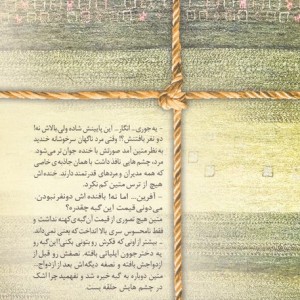 - یه‌جوری... انگار... این پایینش شاده ولی بالاش نه!
دو نفر بافتنش؟! وقتی مرد ناگهان سرخوشانه خندید
به نظر متین آمد صورتش با خنده جوان‌تر می‌شود.
مرد، چشم‌هایی نافذ داشت با همان جاذبه‌ی خاصی
که همه مدیران و مردهای قدرتمند دارند. خنده‌اش
هیچ از ترس متین کم نکرد.
- آفرین... اما نه! بافنده اش دونفر نبودن.
می‌دونی قیمت این گبه چقدره؟
متین هیچ تصوری از قیمت آن گبه‌ی کهنه نداشت و
فقط نامحسوس سری بالا انداخت که یعنی نمی‌داند.
- بیشتر از اونی که فکرش رو بتونی بکنی! این گبه رو
یه دختر جوون ایلیاتی بافته. نصفش رو قبل از
ازدواجش بافته و نصفه دیگه‌اش بعد از ازدواج...
متین دوباره به گبه خیره شد و نفهمید چرا اشک
در چشم هایش حلقه بست.